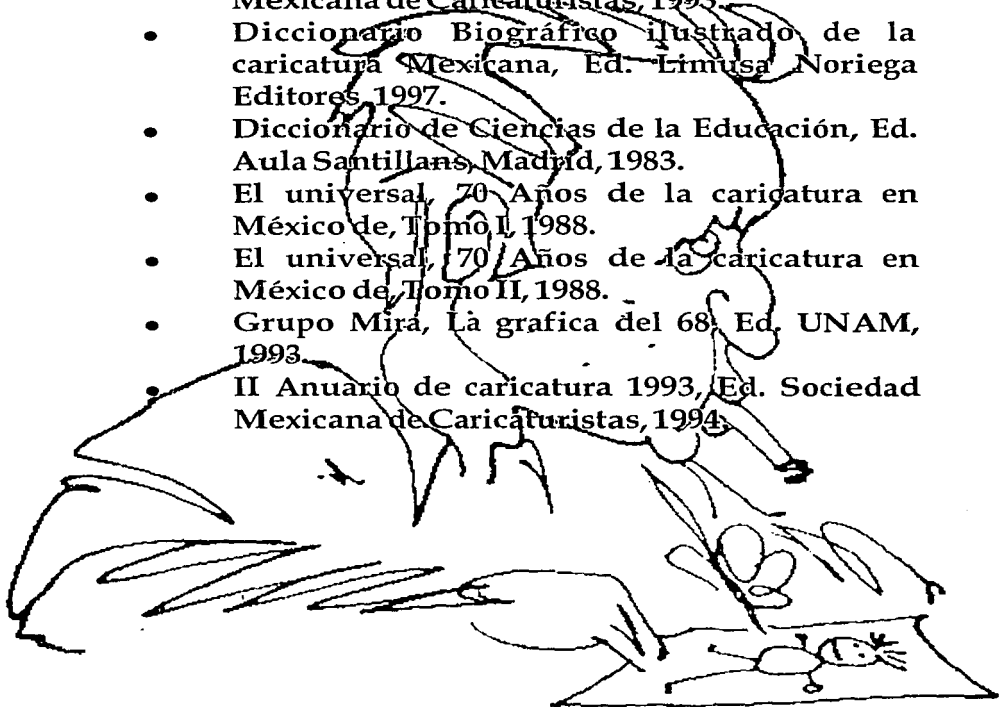 Mexicana de Caricaturistas, 1993.
• Diccionario Biográfico ilustrado de la
caricatura Mexicana, Ed. Limusa Noriega
Editores, 1997.
• Diccionario de Ciencias de la Educación, Ed.
Aula Santillans, Madrid, 1983.
• El universal, 70 Años de la caricatura en
México de, Tomo I, 1988.
• El universal, 70 Años de la caricatura en
México de, Tomo II, 1988.
• Grupo Mira, La grafica del 68, Ed. UNAM,
1993.
• II Anuario de caricatura 1993, Ed. Sociedad
Mexicana de Caricaturistas, 1994.